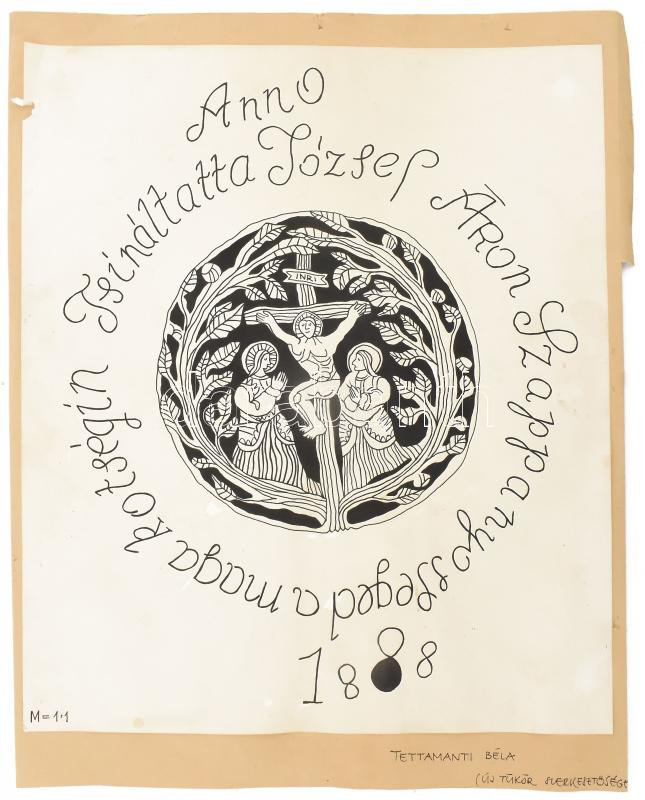 Anno
Tsináltatta József Áron Szappanyos Szeged a maga kotségin
INRI
1888
M=1:1
TETTAMANTI BÉLA
(ÚJ TÜKÖR SZERKESZTŐSÉGE